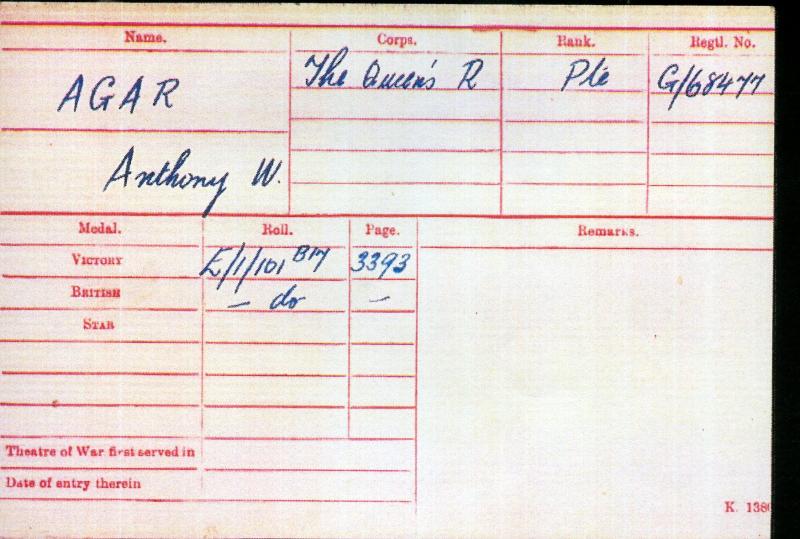 Name. Corps. Rank. Regtl. No.
AGAR The Queen's R Pte G/68477
Anthony W.
Medal. Roll. Page. Remarks.
VICTORY E/1/101 B17 3393
BRITISH — do —
STAR
Theatre of War first served in
Date of entry therein
K. 1380